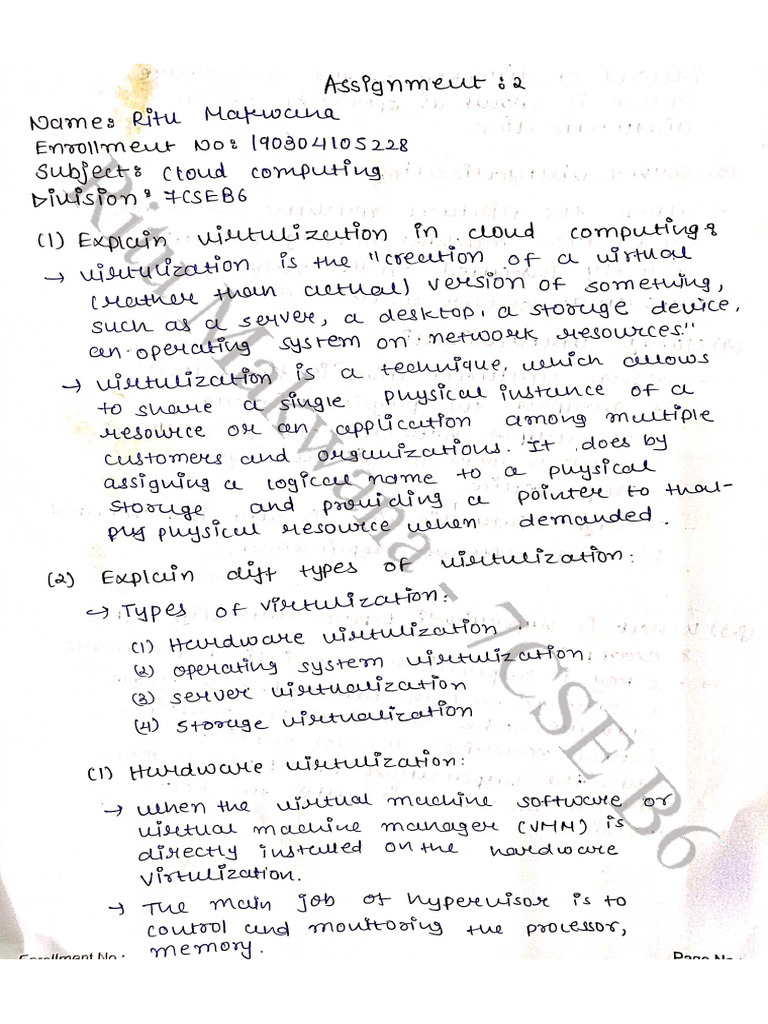 Assignment : 2
Name: Ritu Makwana
Enrollment No: 190304105228
Subject: Cloud computing
Division: 7CSEB6
(1) Explain virtulization in cloud computing:
→ virtulization is the "creation of a virtual
(rather than actual) version of something,
such as a server, a desktop, a storage device,
an operating system on network resources."
→ virtulization is a technique, which allows
to share a single physical instance of a
resource or an application among multiple
customers and organizations. It does by
assigning a logical name to a physical
storage and providing a pointer to that
physical resource when demanded.
(2) Explain diff types of virtulization:
→ Types of virtulization:
(1) Hardware virtulization
(2) operating system virtulization
(3) server virtualization
(4) storage virtualization
(1) Hardware virtulization:
→ when the virtual machine software or
virtual machine manager (VMM) is
directly installed on the hardware
virtulization.
→ The main job of hypervisor is to
control and monitoring the processor,
memory.
Ritu Makwana - 7CSE B6